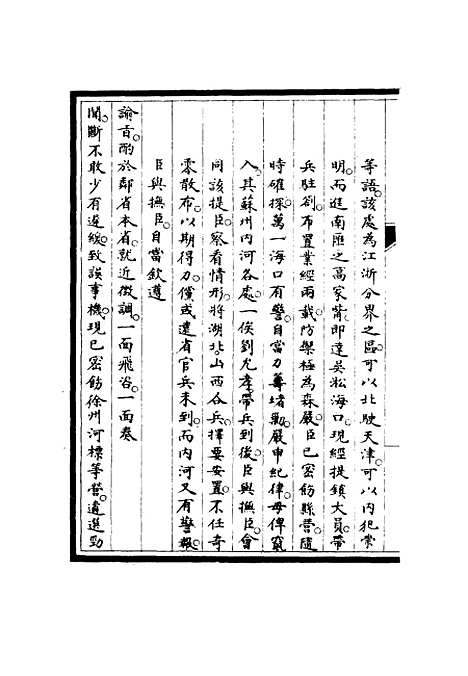 等語。該處為江浙分界之區。可以北駛天津。可以內犯崇
明。而進南匯之高家嘴。即達吳淞海口。現經提鎮大員。帶
兵駐劄。布置業經兩載。防禦極為森嚴。臣已密飭縣營。隨
時確探。萬一海口有警。自當力籌堵勦。嚴申紀律。毋俾竄
入。其蘇州內河各處。一俟劉允孝帶兵到後。臣與撫臣。會
同該提臣。察看情形。將湖北。山西各兵。擇要安置。不任奇
零散布。以期得力。儻或遠省官兵未到。而內河又有警報。
臣與撫臣。自當欽遵
諭旨。酌於鄰省本省。就近徵調。一面飛咨。一面奏
聞。斷不敢少有遲緩。致誤事機。現已密飭徐州河標等營。遴選勁